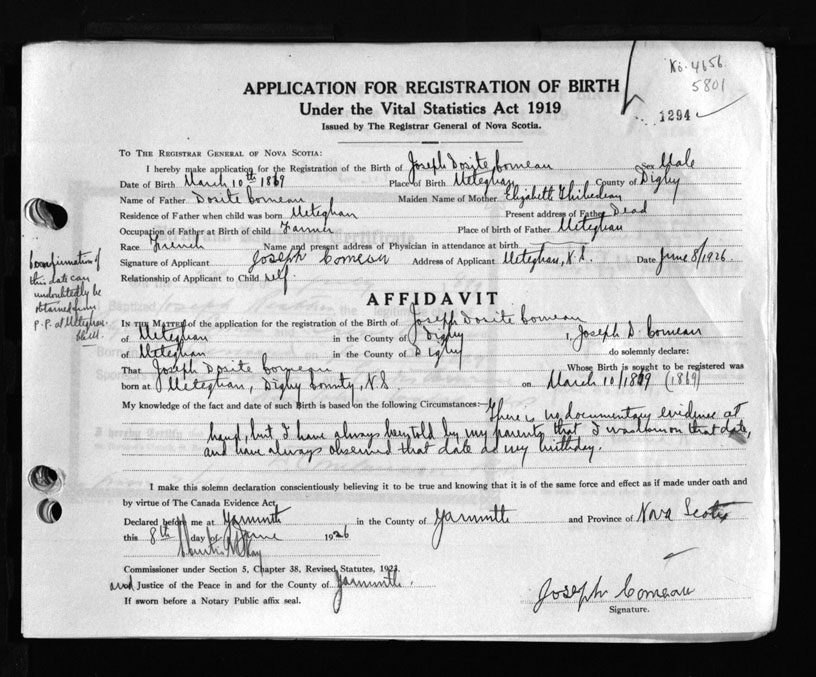 No. 4656
5801
1294
APPLICATION FOR REGISTRATION OF BIRTH
Under the Vital Statistics Act 1919
Issued by The Registrar General of Nova Scotia.
TO THE REGISTRAR GENERAL OF NOVA SCOTIA:
I hereby make application for the Registration of the Birth of Joseph Dosite Comeau Sex Male
Date of Birth March 10th 1869 Place of Birth Meteghan County of Digby
Name of Father Dosite Comeau Maiden Name of Mother Elizabeth Thibedeau
Residence of Father when child was born Meteghan Present address of Father Dead
Occupation of Father at Birth of child Farmer Place of birth of Father Meteghan
Race French Name and present address of Physician in attendance at birth
Signature of Applicant Joseph Comeau Address of Applicant Meteghan, N.S. Date June 8/1926.
Relationship of Applicant to Child self.
Confirmation of
this date can
undoubtedly be
obtained from
P.P. at Meteghan
AFFIDAVIT
IN THE MATTER of the application for the registration of the Birth of Joseph Dosite Comeau
of Meteghan in the County of Digby I, Joseph D. Comeau
of Meteghan in the County of Digby do solemnly declare:
That Joseph Dosite Comeau Whose Birth is sought to be registered was
born at Meteghan, Digby County, N.S. on March 10/1869 (1869)
My knowledge of the fact and date of such Birth is based on the following Circumstances:— There is no documentary evidence at
hand, but I have always been told by my parents that I was born on that date,
and have always observed that date as my birthday.
I make this solemn declaration conscientiously believing it to be true and knowing that it is of the same force and effect as if made under oath and
by virtue of The Canada Evidence Act.
Declared before me at Yarmouth in the County of Yarmouth and Province of Nova Scotia
this 8th day of June 1926
Commissioner under Section 5, Chapter 38, Revised Statutes, 1923.
and Justice of the Peace in and for the County of Yarmouth.
If sworn before a Notary Public affix seal.
Joseph Comeau
Signature.